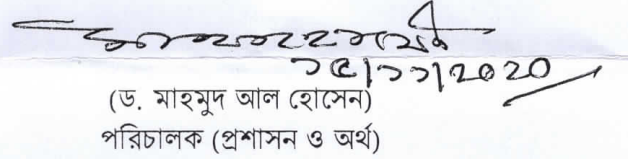 ১৫/১১/২০২০
(ড. মাহমুদ আল হোসেন)
পরিচালক (প্রশাসন ও অর্থ)